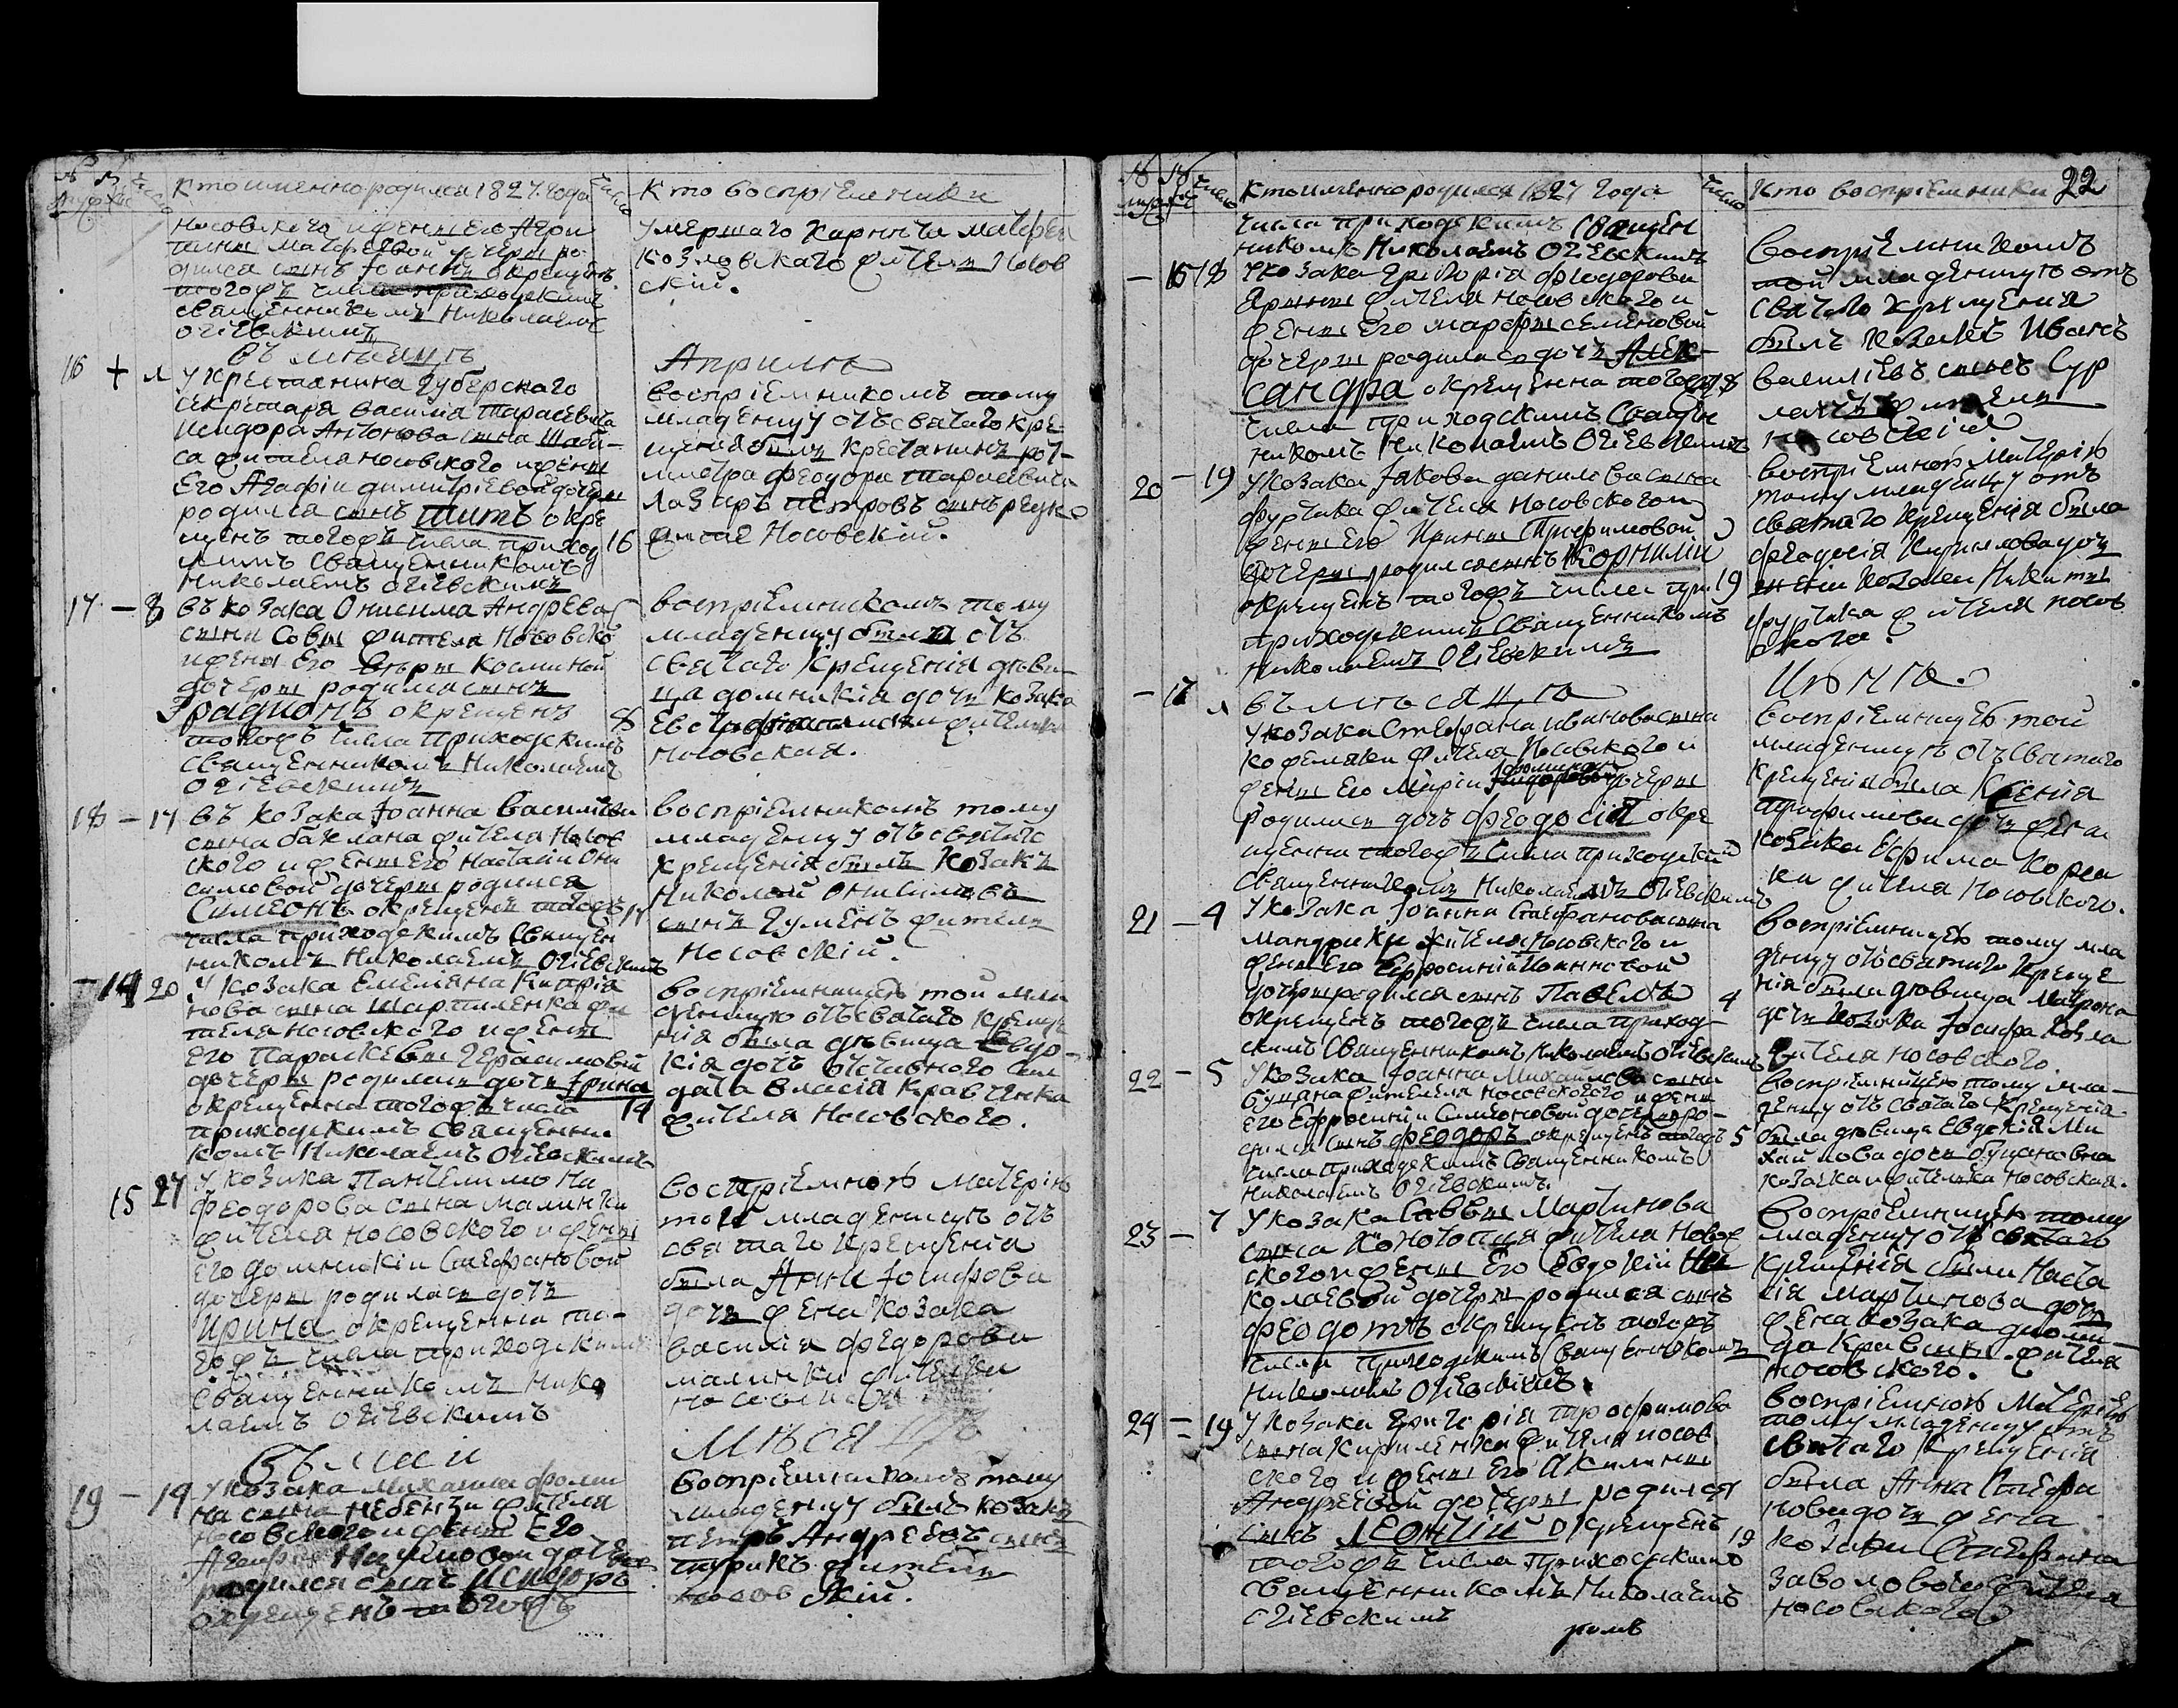 Кто именно родился 1827. года
Кто восприемники
Носовского и жены его Агри
пины Матфеевой дочери ро
дился сынъ Іоаннъ окрещенъ
тогожъ числа приходскимъ
священникомъ Николаемъ
Огіевскимъ
умершаго Матфея
Козловскаго житель Носов
скій.
въ месяце
Априле
16 +
У крестянина Губерскаго
секретаря Василія Тарасевича
Исидора Антонова сына
жителя Носовского и жены
Его Агафіи Димитріевой дочери
родился сынъ Титъ окре
щенъ тогожъ числа приход 16
Священникомъ
Николаемъ Огіевскимъ
восприемникомъ тому
младенцу отъ святаго кре
щенія былъ крестянинъ рот
мистра Феодора Тарасевича
Лазаръ Петровъ сынъ
Носовскій.
17 - 8
въ козака Онисима Андреева
сына Совы жителя Носовско
и жены Его Веры Косминой
дочери родился сынъ
Родионъ окрещенъ 8
тогожъ числа Приходскимъ
священникомъ Николаемъ
Огіевскимъ
восприемникомъ тому
младенцу была отъ
святаго Крещенія деви
ца Домникія дочь козака
Носовская.
18 - 17
въ козака Іоанна Василіева
сына Баклана жителя Носов
ского и жены Его Настасіи Они
симовой дочери родился
Симеонъ окрещенъ тогожъ 17
числа приходскимъ Священ
никомъ Николаемъ Огіевскимъ
восприемникомъ тому
младенцу отъ святаго
крещенія былъ Козакъ
Николай Онисимовъ
сынъ Гуменъ житель
Носовскій.
- 14 20
У козака Емеліяна Кипрія
нова сына Шарпиленка жи
теля Носовского и жены
Его Параскевы Герасимовой
дочери родилась дочь Ірина
окрещенна тогожъ числа 19
приходскимъ Священни
комъ Николаемъ Огіевскимъ
восприемницею той мла
деницы отъ святаго Креще
нія была девица Евдо
кія дочь отставного сол
дата Власія Кравченка
жителя Носовского.
15 27
У козака Пантелимона
Феодорова сына Малинки
жителя Носовского и жены
Его Домникіи Стефановой
дочери родилась дочь
Ирина окрещенна то-
гожъ числа приходскимъ
Священникомъ Нико
лаемъ Огіевскимъ
восприемною Матерію
той младеницы отъ
святаго Крещенія
была Анна Іосифова
дочь жена Козака
Василія Федорова
Малинки жителя
въ маи
месяце
19 - 19
У козака Михаила Фоми
на сына жителя
Носовского и жены Его
дочери
родился сынъ Исидоръ
окрещенъ тогожъ
восприемникомъ тому
младенцу былъ козакъ
Петръ Андреевъ сынъ
Турикъ житель
Носовскій.
Кто именно родился 1827 года
Кто восприемники 22
числа приходскимъ Священ
никомъ Николаемъ Огіевскимъ
- 16 18
У козака Григорія Феодорова
жителя Носовского и
жены Его Марфы Семеновой
дочери родилась дочь Алек
сандра окрещенна тогожъ 18
числа приходскимъ Священ
никомъ Николаемъ Огіевскимъ
восприемникомъ
той младеницы отъ
святаго крещенія
былъ козакъ Иванъ
Василіевъ сынъ
житель
Носовскій
20 - 19
У козака Іакова Данилова сына
Фурсика жителя Носовского и
жены Его Ирины Трофимовой
дочери родился сынъ Корнилій
окрещенъ тогожъ числа при 19
приходскимъ Священникомъ
Николаемъ Огіевскимъ
восприемною Матерію
тому младенцу отъ
святаго крещенія была
Феодосія Кирилова дочь
жена козака Никиты
Фурсика жителя Носов
ского.
въ месяце
Июне.
- 17
У козака Стефана Иванова сына
Кожемяки жителя Носовского и
жены Его Маріи дочери
родилась дочь Феодосія окре
щенна тогожъ числа приходский
Священникомъ Николаемъ Огіевскимъ
восприемницею той
младеницы отъ Святаго
Крещенія была Ксенія
Трофимова дочь жена
козака Ефима Корса
ка жителя Носовского.
21 - 4
У козака Іоанна Стефанова сына
Мандрики жителя Носовского и
жены Его Ефросиніи Іоанновой
дочери родился сынъ Павелъ 4
окрещенъ тогожъ числа приход
скимъ Священникомъ Николаемъ Огіевскимъ
восприемницею тому мла
денцу отъ святаго Креще
нія была девица Матрона
дочь козака Іосифа Козла
жителя Носовского.
22 - 5
У козака Іоанна Михайлова сына
Буцана жителя Носовского и жены
Его Ефросиніи Симеоновой дочери ро-
дился сынъ Феодоръ окрещенъ тогожъ 5
числа приходскимъ Священникомъ
Николаемъ Огіевскимъ.
восприемницею тому мла-
денцу отъ святаго Крещенія
была девица Евдокія Ми
хайлова дочь Буцановна
козачка жителька Носовская.
23 - 7
У козака Саввы Мартинова
сына Конотопця жителя Носов
ского и жены Его Евдокіи Ни
колаевой дочери родился сынъ
Феодотъ окрещенъ тогожъ
числа приходскимъ Священникомъ
Николаемъ Огіевскимъ.
восприемницею тому
младенцу отъ святаго
крещенія была Наста
сія Мартинова дочь
жена козака Диоми
да Кравця жителя
Носовского.
24 - 19
У козака Григорія Трофимова
сына Кириленка жителя Носов
ского и жены Его Акилины
Андреевой дочери родился
сынъ Леонтій окрещенъ 19
тогожъ числа приходскимъ
Священникомъ Николаемъ
Огіевскимъ
восприемною Матерію
тому младенцу отъ
святаго Крещенія
была Анна Стефа
нова дочь жена
козака Стефана
жителя
Носовского